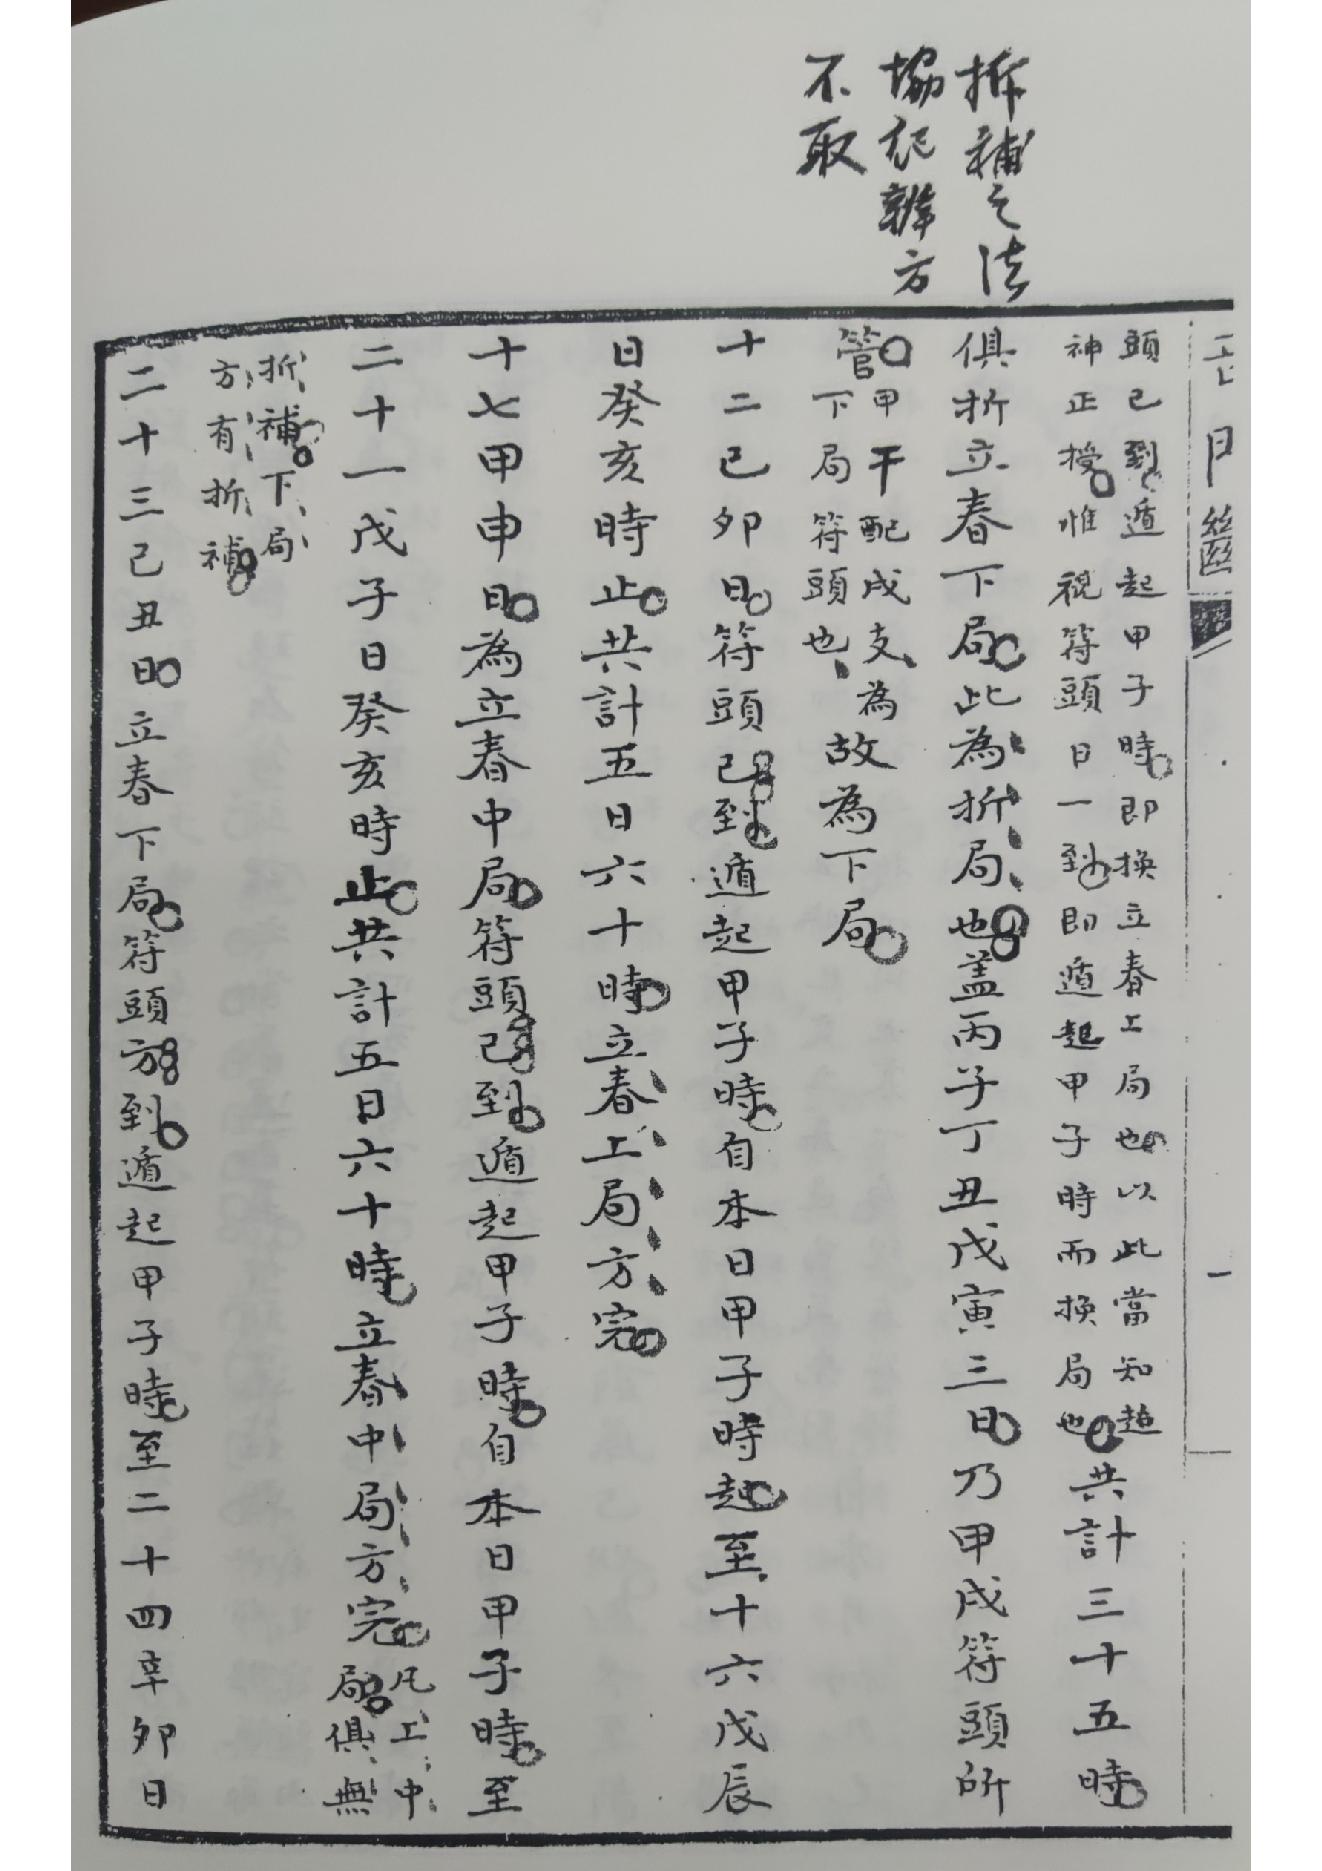 拆補之法
協紀辨方
不取
頭已到遁起甲子時即換立春上局也以此當知超
神正授惟視符頭日一到即遁起甲子時而換局也共計三十五時
俱折立春下局此為折局也盖丙子丁丑戊寅三日乃甲戌符頭所
管甲干配戌支為
下局符頭也故為下局
十二己卯日符頭已到遁起甲子時自本日甲子時起至十六戊辰
日癸亥時止共計五日六十時立春上局方完
十七甲申日為立春中局符頭已到遁起甲子時自本日甲子時至
二十一戊子日癸亥時止共計五日六十時立春中局方完凡上中
局俱無
折補下局
方有折補
二十三己丑日立春下局符頭方到遁起甲子時至二十四辛卯日